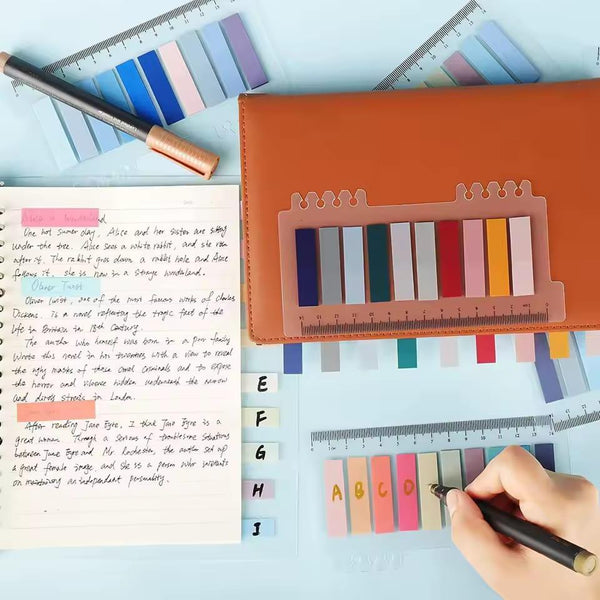 Alice in Wonderland
One hot summer day, Alice and her sister are sitting
under the tree. Alice sees a white rabbit, and she ran
after it. The rabbit goes down a rabbit hole and Alice
follows it. she is now in a strange wonderland.
Oliver Twist
Oliver Twist, one of the most famous works of Charles
Dickens. is a novel reflecting the tragic fact of the
life in Britain in 18th Century.
The author who himself was born in a poor family
wrote this novel in his with a view to reveal
the ugly masks of those cruel criminals and to expose
the horror and violence hidden underneath the narrow
and dirty streets in London.
After reading Jane Eyre, I think Jane Eyre is a
great woman. Through a serious of troublesome situations
between Jane Eyre and Mr Rochester, the author set up
a great female image and she is a person who insists
on maintaining an independent personality.
E
F
G
H
I
A B C D